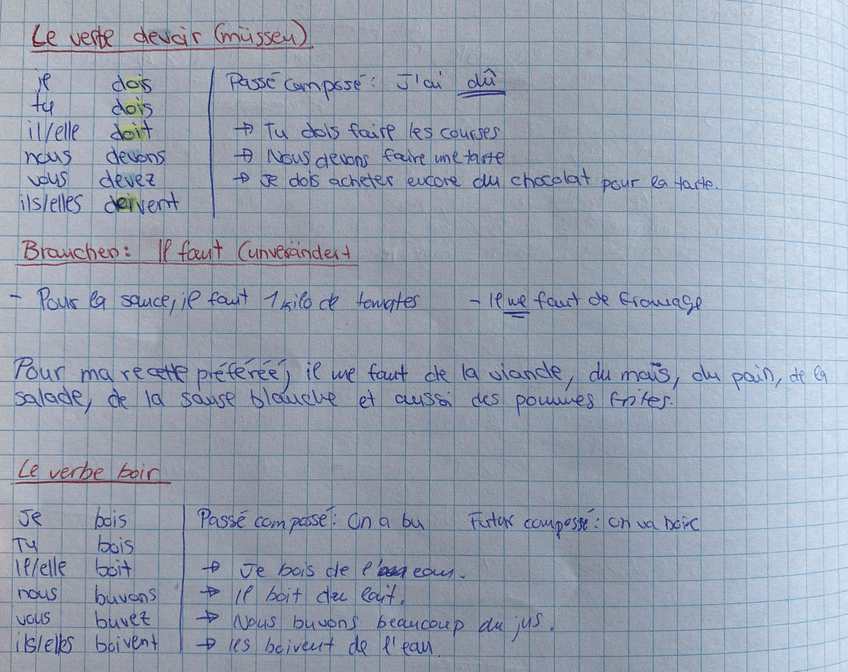 Le verbe devoir (müssen)
je dois
tu dois
il/elle doit
nous devons
vous devez
ils/elles deivent
Passé composé: J'ai dû
→ Tu dois faire les courses
→ Nous devons faire une tarte
→ Je dois acheter encore du chocolat pour la tarte.
Brauchen: Il faut (unverändert
- Pour la sauce, il faut 1 kilo de tomates
- Il me faut de fromage
Pour ma recette préférée, il me faut de la viande, du maïs, du pain, de la
salade, de la sause blanche et aussi des pommes frites.
Le verbe boir
Je bois
Tu bois
Il/elle boit
nous buvons
vous buvez
ils/elles boivent
Passé composé: On a bu
Futur composé: on va boire
→ Je bois de l'eau.
→ Il boit du lait.
→ Nous buvons beaucoup du jus.
→ Ils boivent de l'eau.